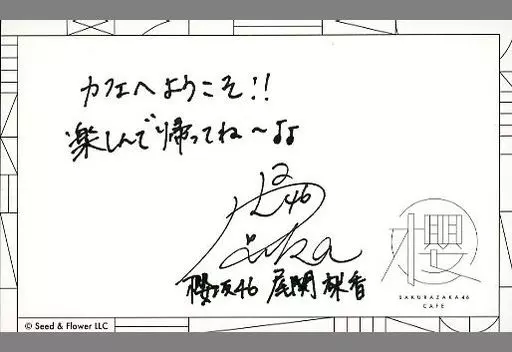 カフェへようこそ!!
楽しんで帰ってね〜♪♪
櫻坂46 尾関梨香
櫻
SAKURAZAKA46
CAFE
© Seed & Flower LLC